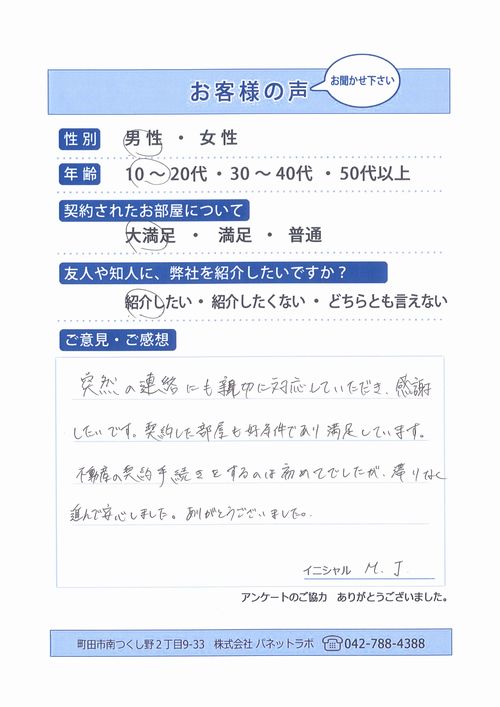 お客様の声
お聞かせ下さい
性別
男性 ・ 女性
年齢
10～20代 ・ 30～40代 ・ 50代以上
契約されたお部屋について
大満足 ・ 満足 ・ 普通
友人や知人に、弊社を紹介したいですか？
紹介したい ・ 紹介したくない ・ どちらとも言えない
ご意見・ご感想
突然の連絡にも親切に対応していただき、感謝
したいです。契約した部屋も好条件であり満足しています。
不動産の契約手続きをするのは初めてでしたが、滞りなく
進んで安心しました。ありがとうございました。
イニシャル M. J.
アンケートのご協力 ありがとうございました。
町田市南つくし野2丁目9-33 株式会社 パネットラボ 042-788-4388